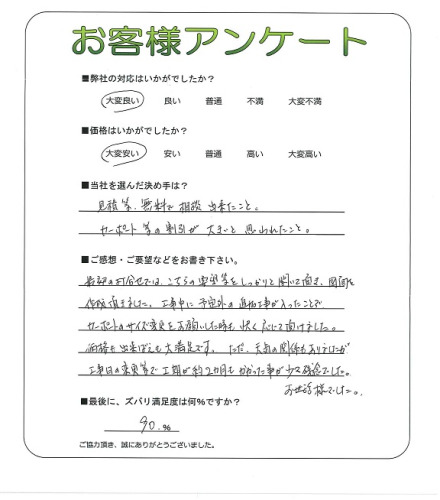 お客様アンケート
■弊社の対応はいかがでしたか？
大変良い 良い 普通 不満 大変不満
■価格はいかがでしたか？
大変安い 安い 普通 高い 大変高い
■当社を選んだ決め手は？
見積等、無料で相談出来たこと。
カーポート等の割引が大きいと思われたこと。
■ご感想・ご要望などをお書き下さい。
最初の打合せでは、こちらの要望等をしっかりと聞いて頂き、図面を
作成頂きました。工事中に予定外の追加工事が入ったことで
カーポートのサイズ変更をお願いした時も快く応じて頂けました。
価格も出来ばえも大満足です。ただ、天気の関係もありましたが
工事日の変更等で工期が約2カ月もかかった事が少々残念でした。
お世話様でした。
■最後に、ズバリ満足度は何%ですか？
90.%
ご協力頂き、誠にありがとうございました。